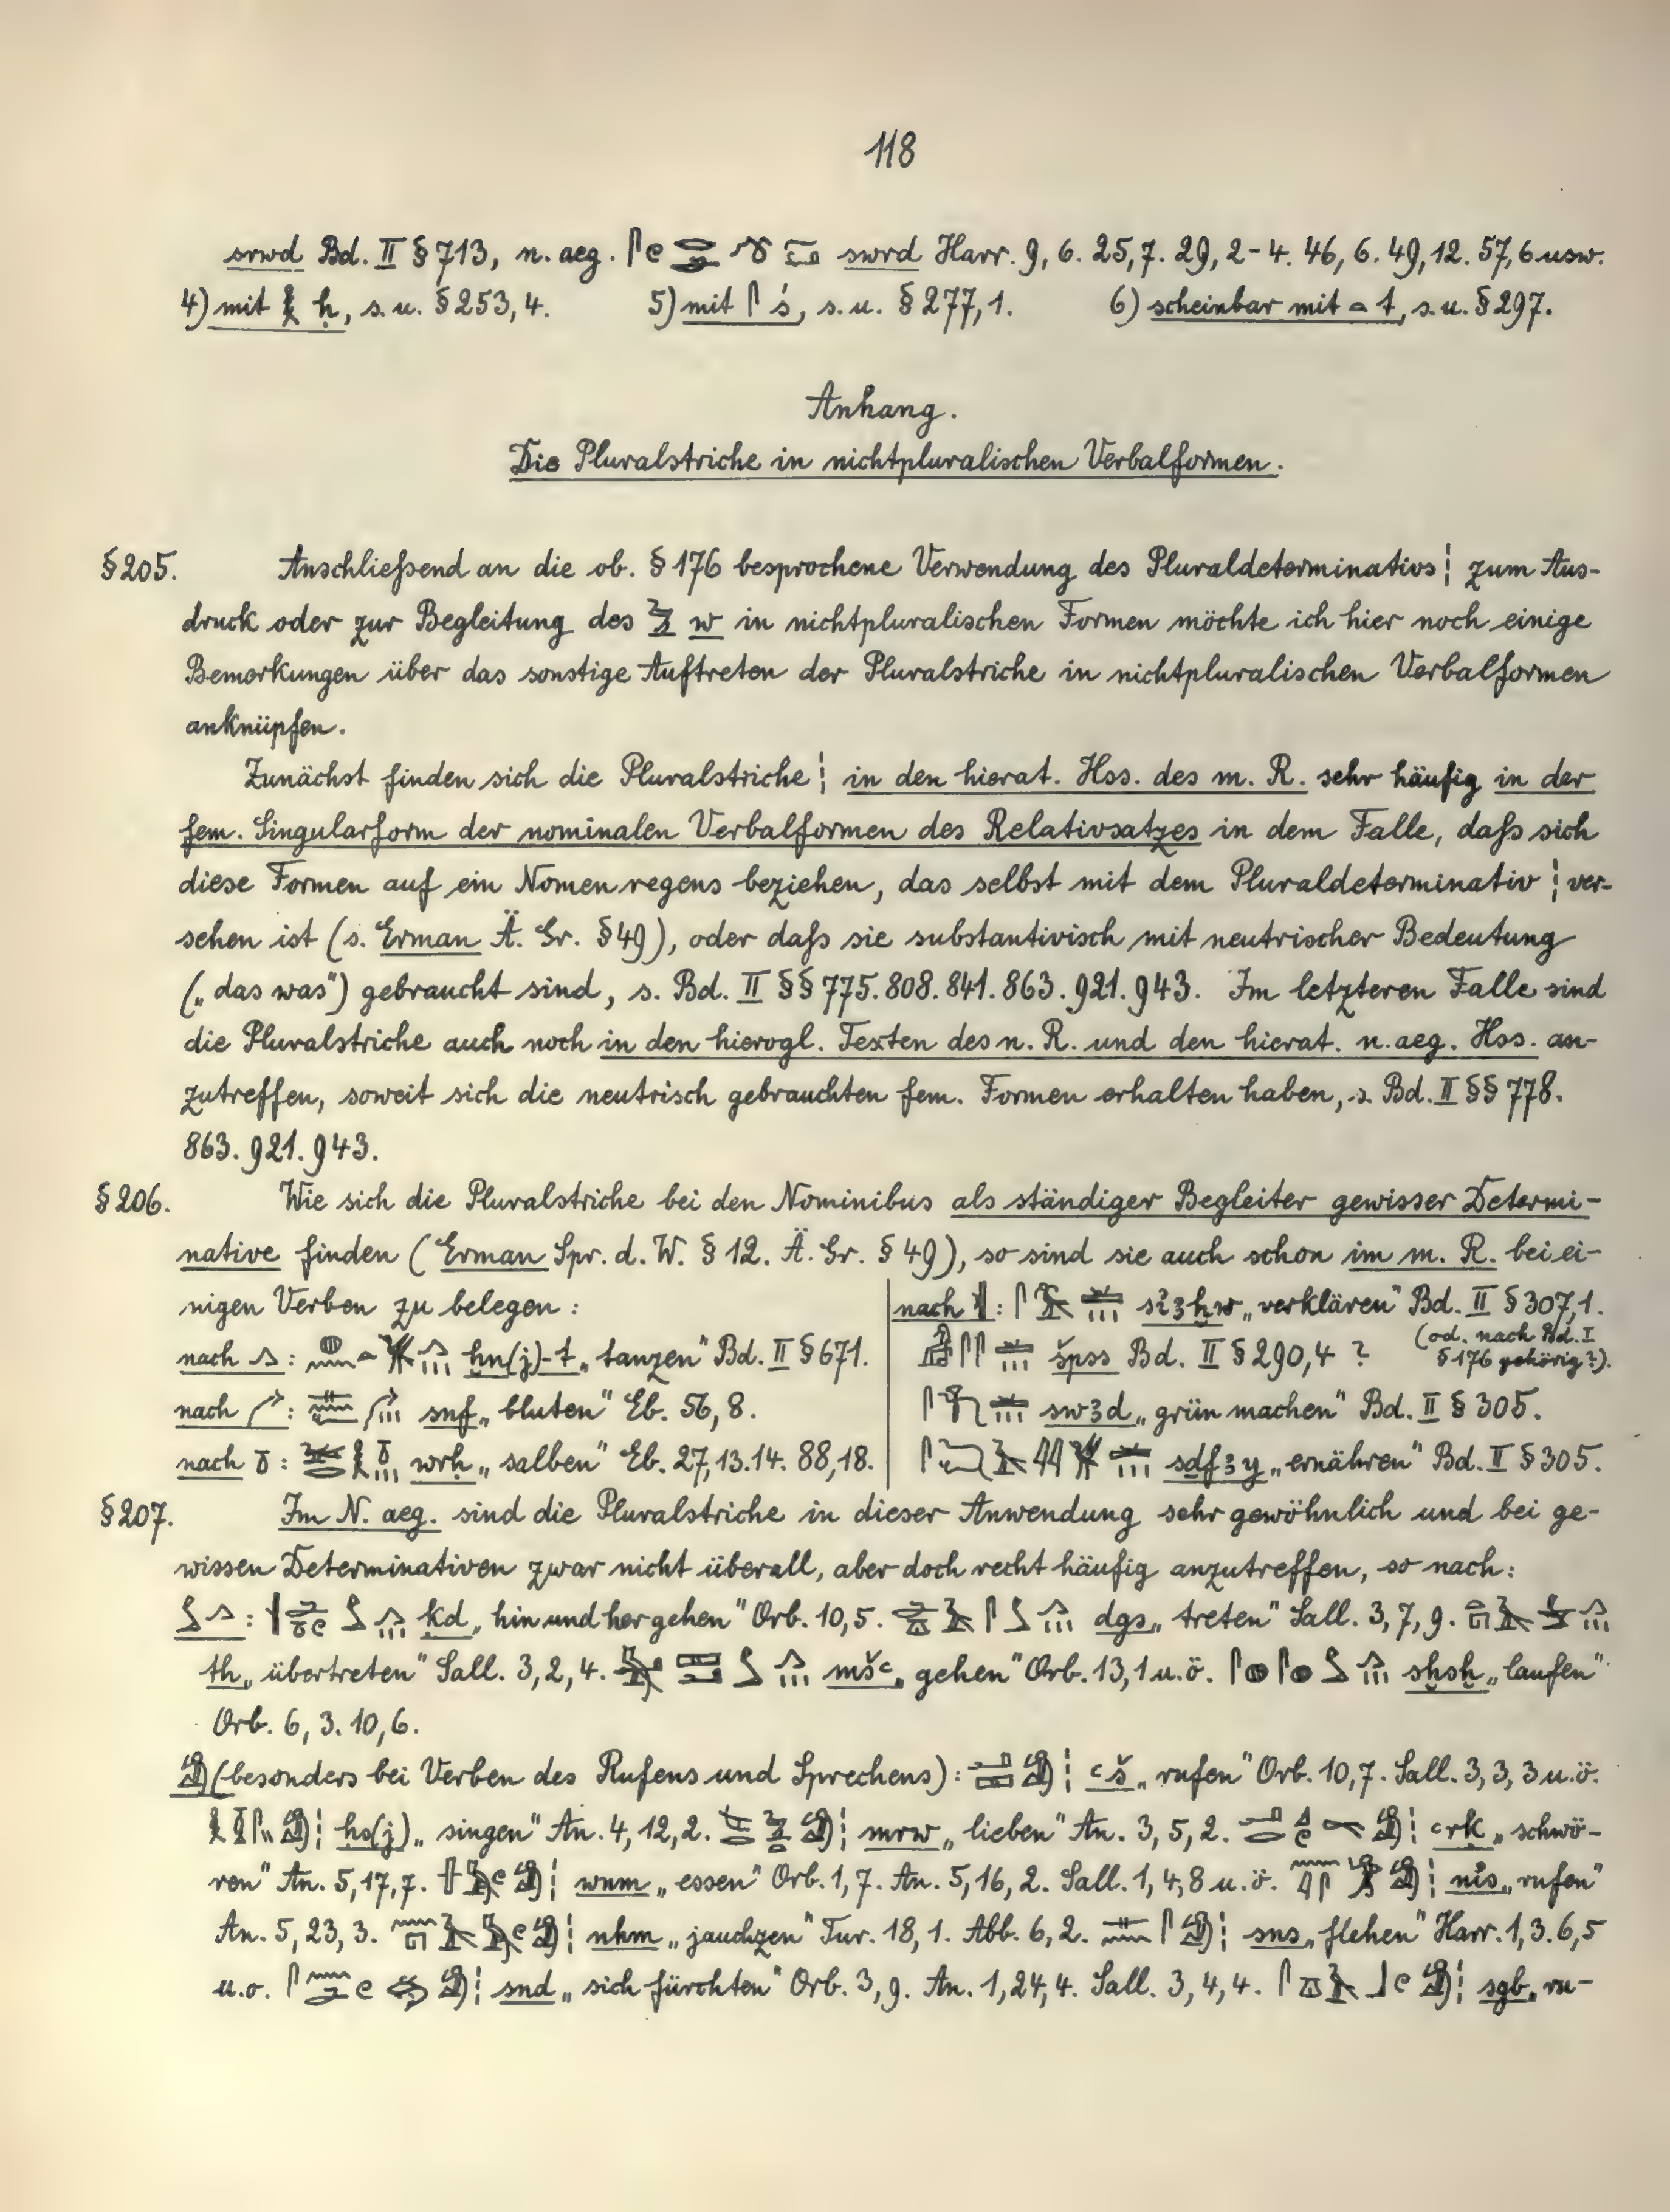 118
srwd Bd. II § 713, n. aeg. swrd Harr. 9, 6. 25, 7. 29, 2-4. 46, 6. 49, 12. 57, 6 usw.
4) mit ḥ, s. u. § 253, 4. 5) mit ś, s. u. § 277, 1. 6) scheinbar mit t, s. u. § 297.
Anhang.
Die Pluralstriche in nichtpluralischen Verbalformen.
§ 205. Anschließend an die ob. § 176 besprochene Verwendung des Pluraldeterminativs ¦ zum Aus-
druck oder zur Begleitung des w in nichtpluralischen Formen möchte ich hier noch einige
Bemerkungen über das sonstige Auftreten der Pluralstriche in nichtpluralischen Verbalformen
anknüpfen.
Zunächst finden sich die Pluralstriche ¦ in den hierat. Hss. des m. R. sehr häufig in der
fem. Singularform der nominalen Verbalformen des Relativsatzes in dem Falle, daß sich
diese Formen auf ein Nomen regens beziehen, das selbst mit dem Pluraldeterminativ ¦ ver-
sehen ist (s. Erman Ä. Gr. § 49), oder daß sie substantivisch mit neutrischer Bedeutung
(„das was“) gebraucht sind, s. Bd. II §§ 775. 808. 841. 863. 921. 943. Im letzteren Falle sind
die Pluralstriche auch noch in den hierogl. Texten des n. R. und den hierat. n. aeg. Hss. an-
zutreffen, soweit sich die neutrisch gebrauchten fem. Formen erhalten haben, s. Bd. II §§ 778.
863. 921. 943.
§ 206. Wie sich die Pluralstriche bei den Nominibus als ständiger Begleiter gewisser Determi-
native finden (Erman Spr. d. W. § 12. Ä. Gr. § 49), so sind sie auch schon im m. R. bei ei-
nigen Verben zu belegen:
nach : ḫn(j)-t „tanzen“ Bd. II § 671.
nach : snf „bluten“ Eb. 56, 8.
nach : wrḥ „salben“ Eb. 27, 13. 14. 88, 18.
nach : sỉꜣḫw „verklären“ Bd. II § 307, 1.
špss Bd. II § 290, 4 ? (od. nach Bd. I
§ 176 gehörig?).
swꜣd „grün machen“ Bd. II § 305.
sdfꜣy „ernähren“ Bd. II § 305.
§ 207. Im N. aeg. sind die Pluralstriche in dieser Anwendung sehr gewöhnlich und bei ge-
wissen Determinativen zwar nicht überall, aber doch recht häufig anzutreffen, so nach:
: ḳd „hin und her gehen“ Orb. 10, 5. dgs „treten“ Sall. 3, 7, 9.
th „übertreten“ Sall. 3, 2, 4. mšꜥ „gehen“ Orb. 13, 1 u. ö. sḫsḫ „laufen“
Orb. 6, 3. 10, 6.
(besonders bei Verben des Rufens und Sprechens): ¦ ꜥš „rufen“ Orb. 10, 7. Sall. 3, 3, 3 u. ö.
¦ ḥs(j) „singen“ An. 4, 12, 2. ¦ mrw „lieben“ An. 3, 5, 2. ¦ ꜥrḳ „schwö-
ren“ An. 5, 17, 7. ¦ wnm „essen“ Orb. 1, 7. An. 5, 16, 2. Sall. 1, 4, 8 u. ö. ¦ nỉs „rufen“
An. 5, 23, 3. ¦ nhm „jauchzen“ Tur. 18, 1. Abb. 6, 2. ¦ sns „flehen“ Harr. 1, 3. 6, 5
u. o. ¦ snd „sich fürchten“ Orb. 3, 9. An. 1, 24, 4. Sall. 3, 4, 4. ¦ sgb „ru-